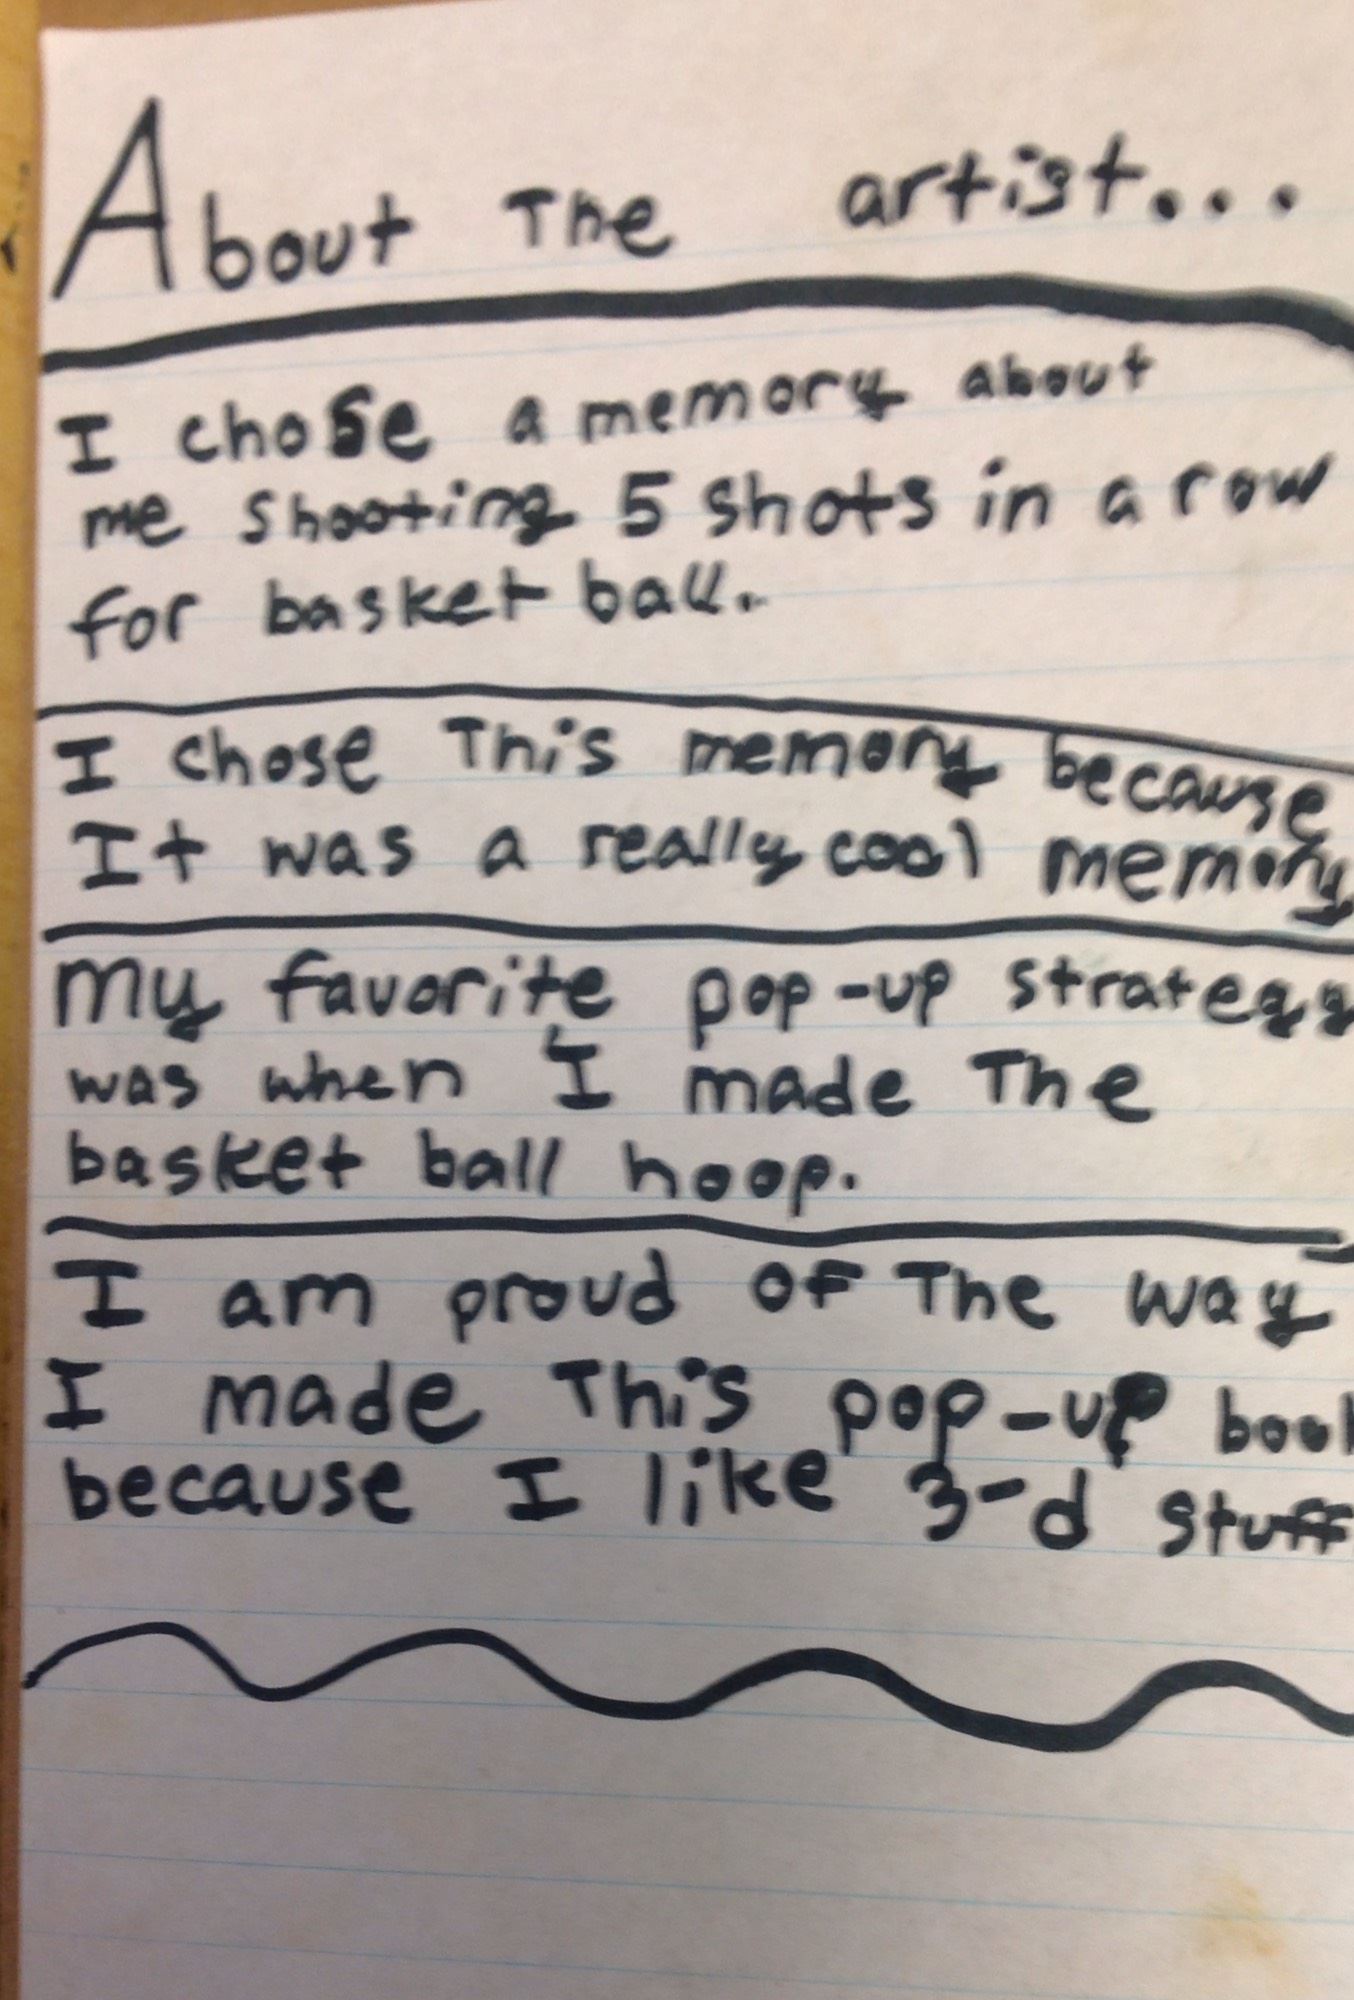 About The artist...
I chose a memory about
me shooting 5 shots in a row
for basket ball.
I chose This memory because
It was a really cool memory
My favorite pop-up strategy
was when I made The
basket ball hoop.
I am proud of The way
I made This pop-up book
because I like 3-d stuff